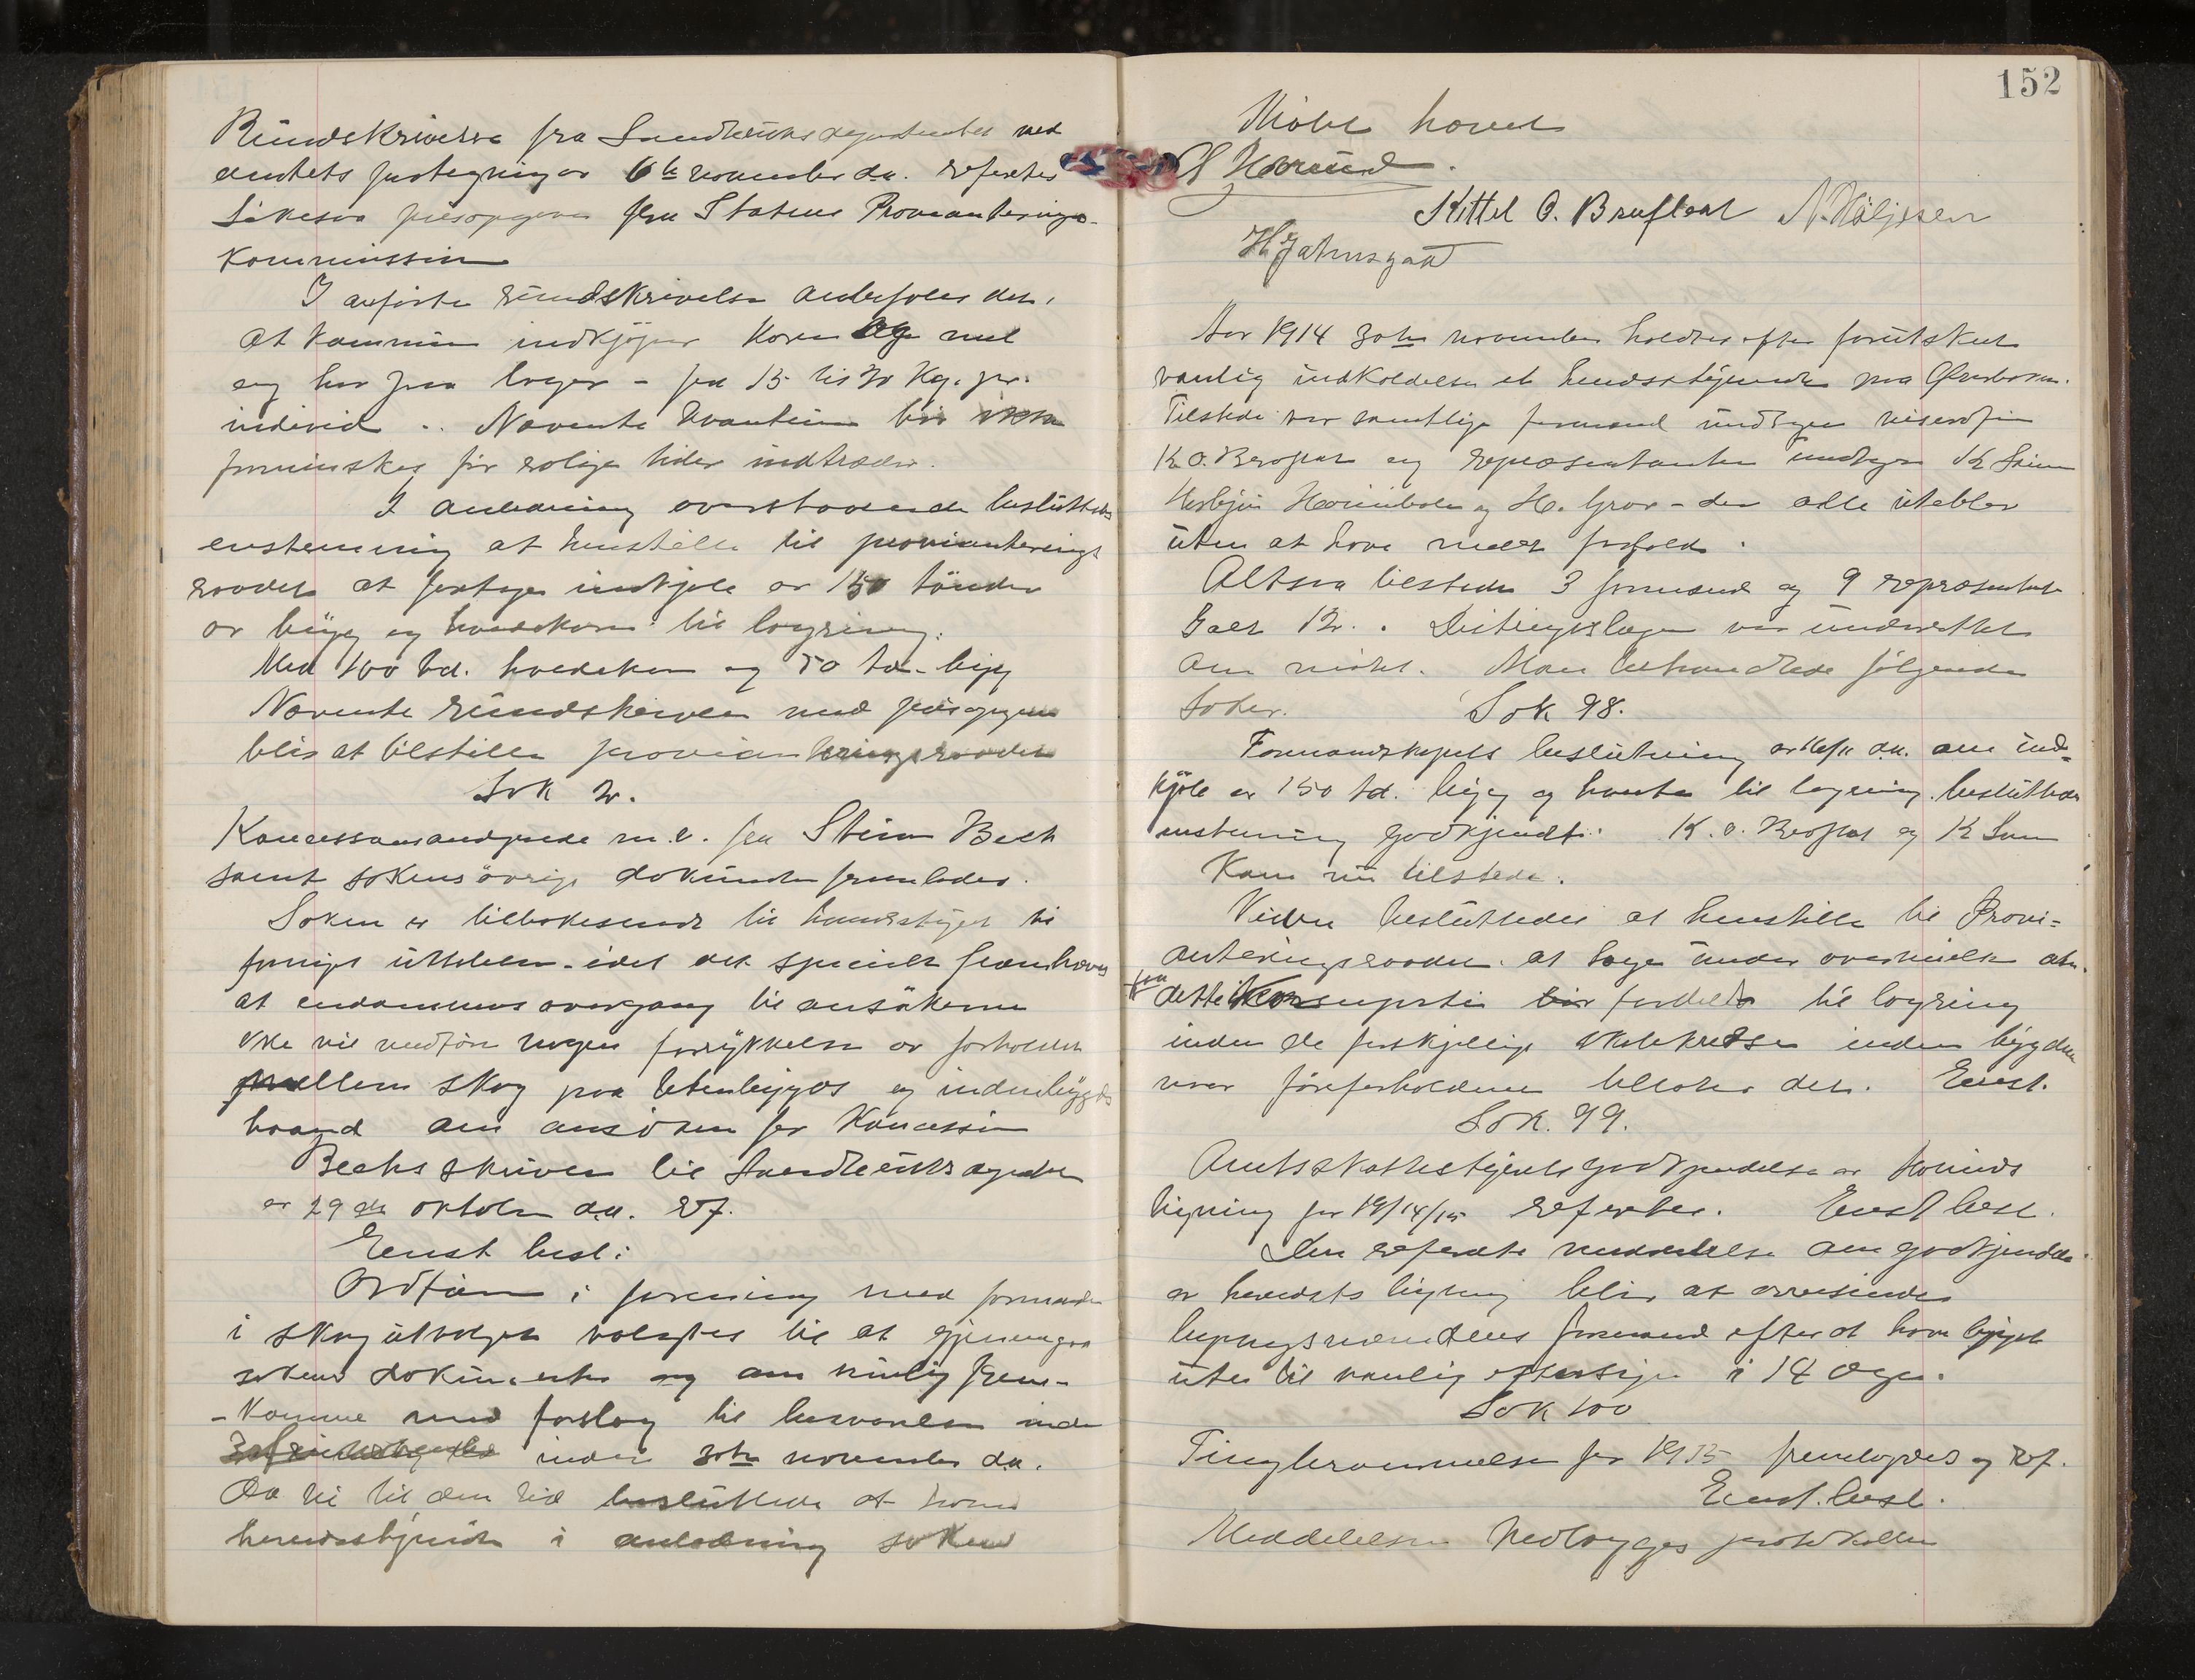 Rundskrivelse fra Landbruksdepartementet med
amtets paategning av 6te november d.a. refertes
Likesaa prisopgaver fra Statens Provianterings-
Kommission
I anførte rundskrivelse anbefales det,
at kommunen indkjøper korn og mel
og har paa lager - fra 15 til 20 Kg. pr.
individ .. Nævnte kvantum bør ikke
forminskes før rolige tider indtræder.
I anledning ovenstaaende besluttedes
enstemmig at henstille til provianterings
raadet at foretage indkjøp av 150 tønder
av byg og hvedekorn til lagring.
Med 100 td. hvedekorn og 50 td. byg
Nævnte rundskrivelse med prisopgave
blir at tilstille provianteringsraadet
Sak 2.
Koncessionsandragende m.v. fra Steen Bech
samt sakens øvrige dokumenter fremlades.
Saken er tilbakesendt til herredsstyret til
fornyet uttalelse - idet det specielt fremhæves
at eiendommens overgang til ansøkerne
ikke vil medføre nogen forrykkelse av forholdet
mellem skog paa utenbygds og indenbygds
haand om ansøkeren faar Koncession
Bechs skrivelse til Landbruksdepartementet
av 29de oktober d.a. ref.
Eenst. besl:
Ordføreren i forening med formanden
i skogutvalget valgtes til at gjennemgaa
sakens dokumenter og om mulig frem-
-komme med forslag til besvarelse inden
inden 30te november d.a.
Da vil til den tid besluttedes at holdes
herredsstyremøte i anledning saken
152
Møtet hævet
H Kittel O. Bruflaat N. Haljesen
H Jahnsgaard
Aar 1914 30te november holdtes efter forutskikket
vanlig indkaldelse et herredsstyremøte paa
Tilstede var samtlige formænd undtagen viseordfører
K.O. og repræsentanter undtagen K.
og H. Grov - der alle uteblev
uten at have meldt forfald.
Altsaa tilstede 3 formænd og 9 repræsentanter
Ialt 12. . Distriktslægen var underrettet
om møtet. Man behandlede følgende
saker. Sak 98.
Formandskapets beslutning av 16/11 d.a. om ind-
kjøp av 150 td. byg og hvete til lagring besluttedes
enstemmig godkjendt. K.O. og K.
Kom nu tilstede.
Videre besluttedes at henstille til Provi-
anteringsraadet at tage under overveielse at
fra
dette Kornparti fordeles til lagring
inden de forskjellige skolekredser inden bygden
naar føreforholdene tillater det. Eenst.
Sak. 99.
Amtsskattestyrets godkjendelse av herreds
ligning for 1914/15 refertes. Eenst besl.
Den referte meddelelse om godkjendelse
av herredets ligning blir at oversende
ligningsnævndens formand efter at have ligget
ute til vanlig eftersyn i 14 dage.
Sak 100
Tingberammelsen for 1915 fremlagdes og ref.
Eenst. besl.
Meddelelsen nedlægges protokollen